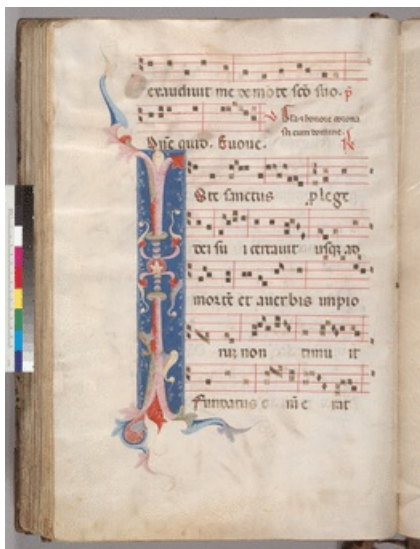 exaudiuit me de mõte scõ suo. p̃
Gla et honore corona
Dñe quis. Euoue.
Ste sanctus p lege
dei sui certauit usqz ad
morté et a uerbis impio
rum non timu it
Fundatus e nī e rat